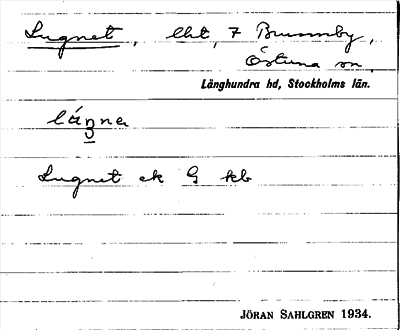 Lugnet, lht, 7 Brunnby,
Östuna sn,
Långhundra hd, Stockholms län.
länna
3
Lugnet ek G kb
JÖRAN SAHLGREN 1934.